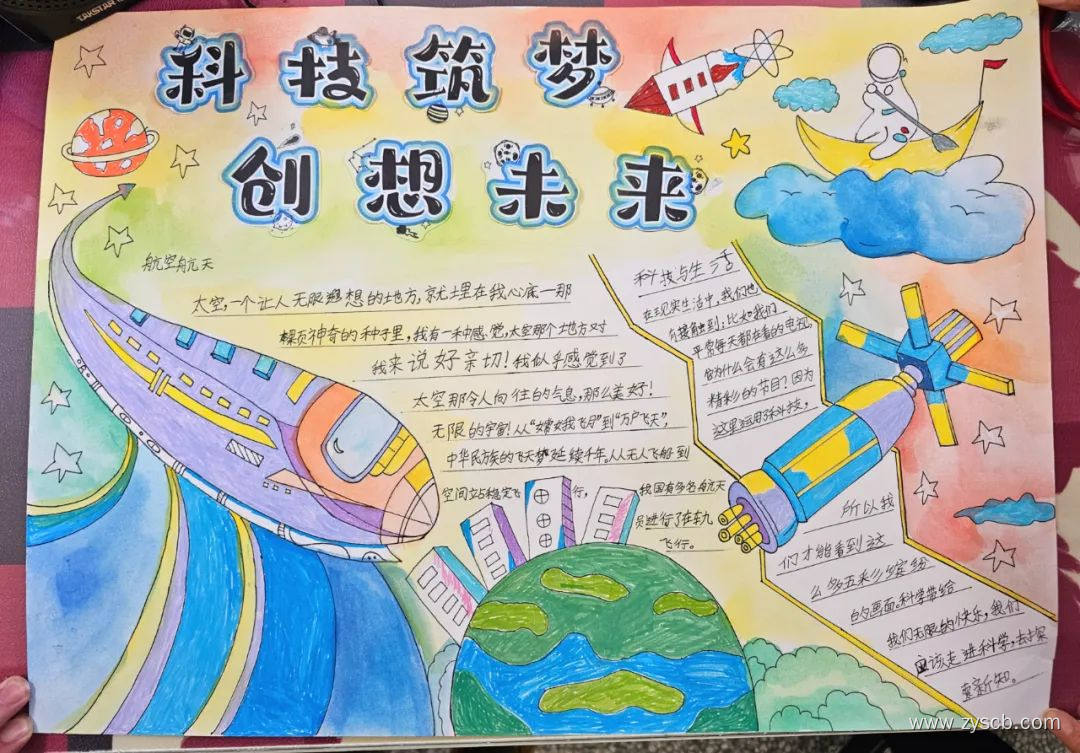 TAKSTAR
科技筑梦
创想未来
航空航天
太空,一个让人无限遐想的地方,就埋在我心底一那
颗页神奇的种子里,我有一种感觉,太空那个地方对
我来说好亲切!我似乎感觉到了
太空那令人向往的气息,那么美好!
无限的宇宙!从“嫦娥飞月”到“万户飞天”,
中华民族的飞天梦延续千年。从无人飞船到
空间立占稳定飞行,我国有多名航天
员进行了在轨
飞行。
科技与生活
在现实生活中,我们也
有接触到:比如我们
平常每天都在看的电视,
为什么会有这么多
精彩的节目?因为
这里运用了科技,
所以我
们才能看到这
么多五采缤纷
的画面。科学带给
我们无限的快乐,我们
应该走进科学,去探
索新知。
www.zyscb.com